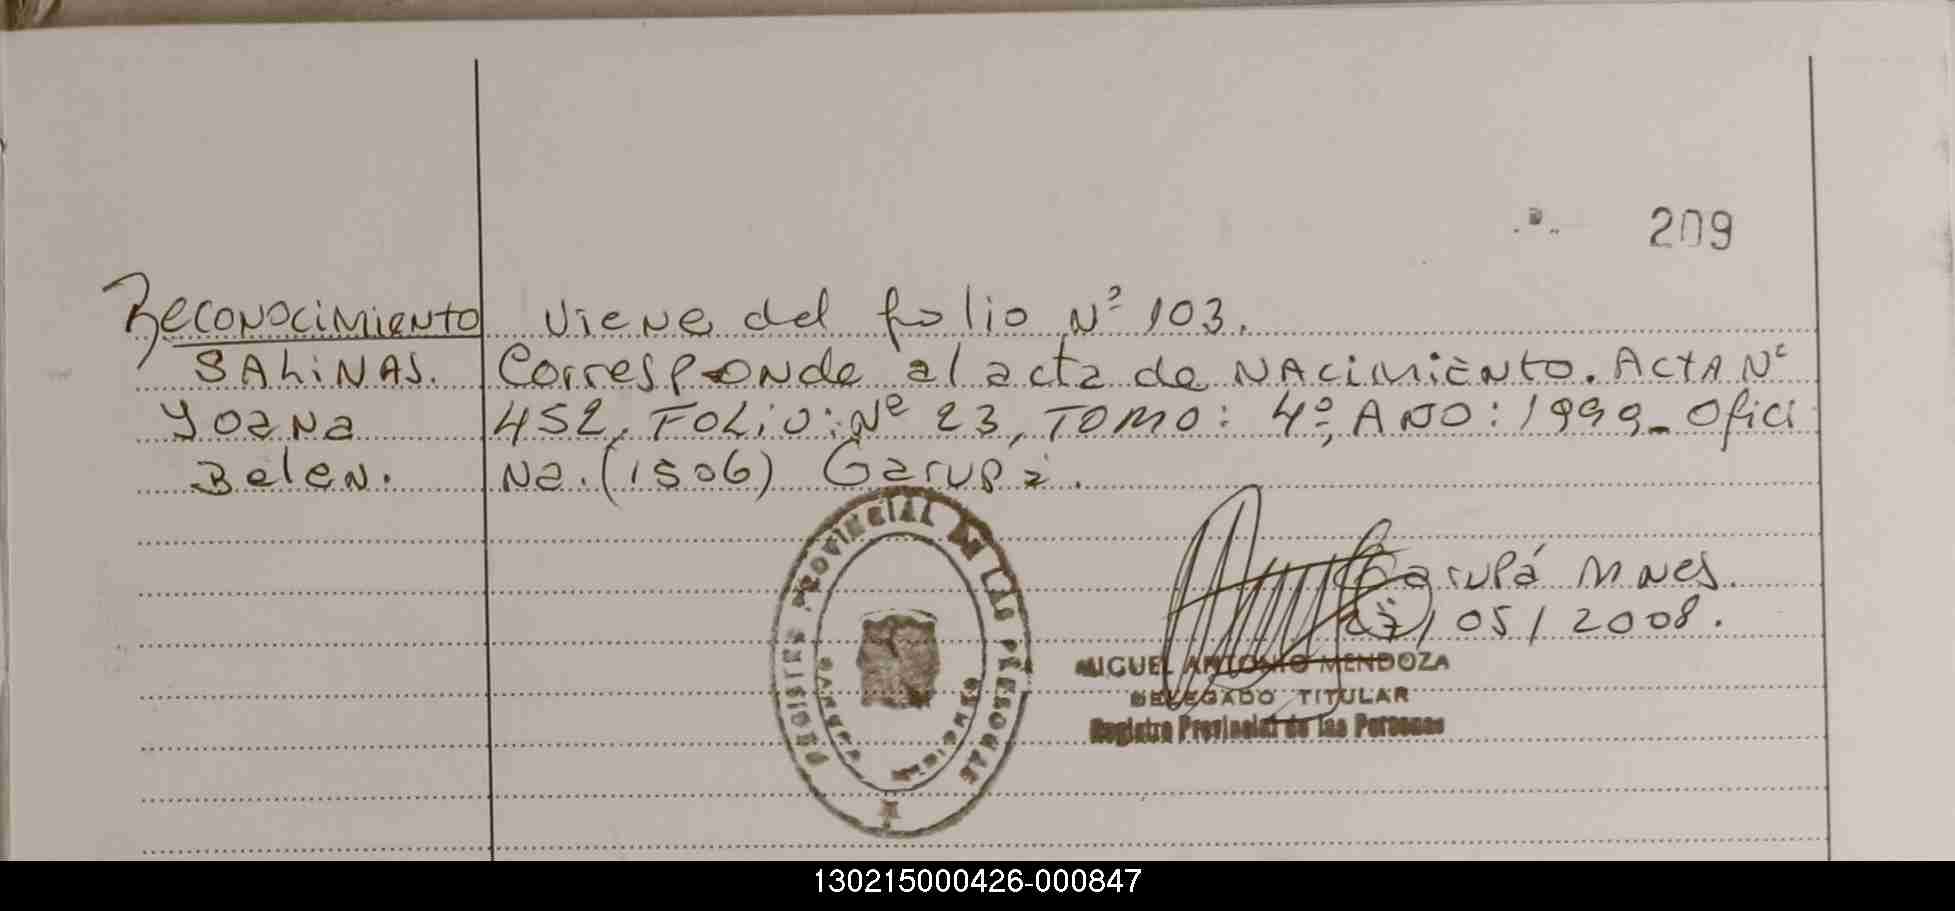 209
Reconocimiento Viene del folio Nº 103.
SALiNAS. Corresponde al acta de NACimiento. ACTA Nº
Yoana 452, FOLiO: Nº 23, TOMO: 4º, AÑO: 1999_ Ofici
Belen. Na. (1506) Garupá.
REGISTRO PROVINCIAL DE LAS PERSONAS
Garupá Mnes.
05/2008.
MIGUEL ANTONIO MENDOZA
DELEGADO TITULAR
Registro Provincial de las Personas
130215000426-000847